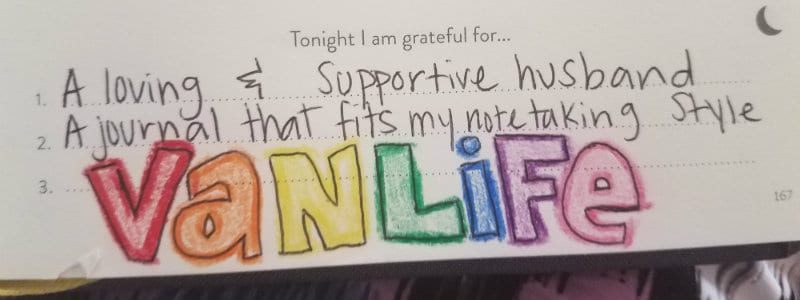 Tonight I am grateful for...
1. A loving & Supportive husband
2. A journal that fits my notetaking Style
3. VaNLiFe
167